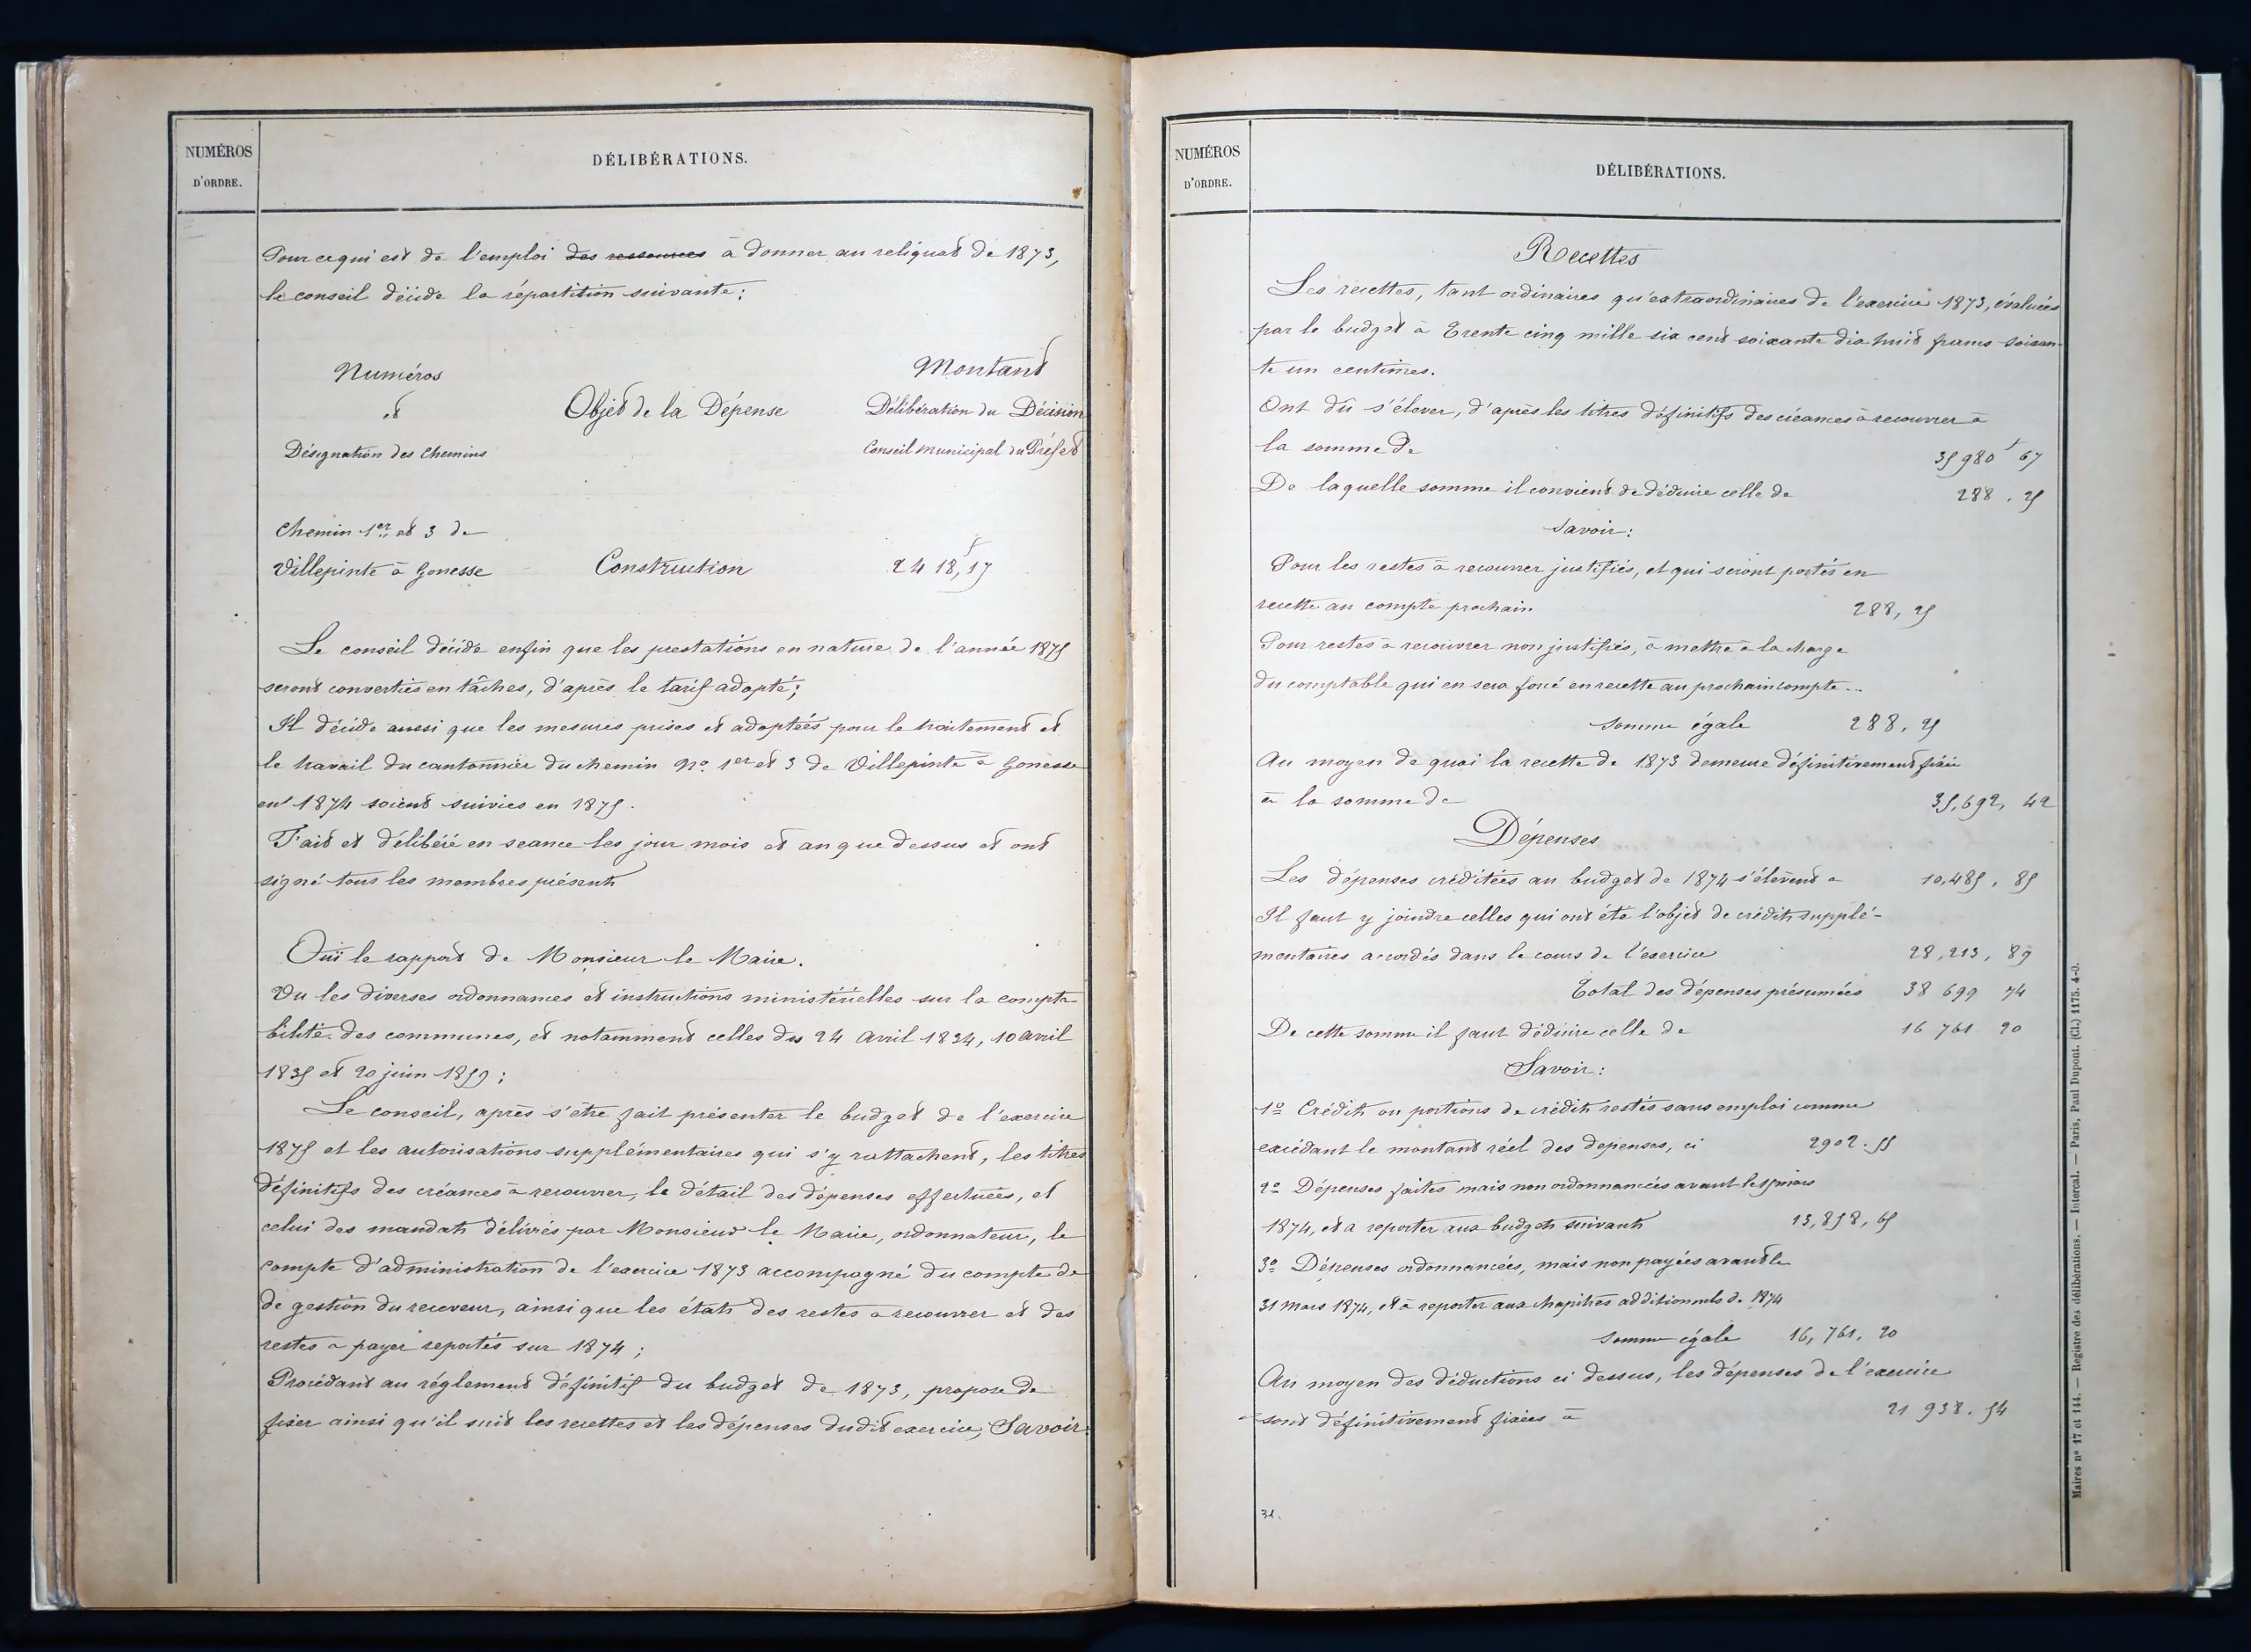 NUMÉROS
D'ORDRE.
DÉLIBÉRATIONS.
Pour ce qui est de l'emploi des ressources à donner au reliquat de 1873,
le conseil décide la répartition suivante:
Numéros
et
Désignation des Chemins
Objet de la Dépense
Montant
Délibération du Décision
Conseil municipal du Préfet
Chemin 1er et 3 de
Villepinte à Gonesse
Construction
24 18, 17
Le conseil décide enfin que les prestations en nature de l'année 1875
seront converties en tâches, d'après le tarif adopté;
Il décide aussi que les mesures prises et adoptées pour le traitement et
le travail du cantonnier du chemin No 1er et 3 de Villepinte à Gonesse
en 1874 soient suivies en 1875.
Fait et délibéré en seance les jour mois et an que dessus et ont
signé tous les membres présents
Ouï le rapport de Monsieur le Maire.
Vu les diverses ordonnances et instructions ministérielles sur la compta
bilité des communes, et notamment celles des 24 Avril 1834, 10 avril
1835 et 20 juin 1859;
Le conseil, après s'être fait présenter le budget de l'exercice
1875 et les autorisations supplémentaires qui s'y rattachent, les titres
définitifs des créances à recouvrer, le détail des dépenses effectuées, et
celui des mandats délivrés par Monsieur le Maire, ordonnateur, le
compte d'administration de l'exercice 1873 accompagné du compte de
de gestion du receveur, ainsi que les états des restes à recouvrer et des
restes à payer reportés sur 1874;
Procédant au réglement définitif du budget de 1873, propose de
fixer ainsi qu'il suit les recettes et les dépenses dudit exercice, Savoir:
NUMÉROS
D'ORDRE.
DÉLIBÉRATIONS.
Recettes
Les recettes, tant ordinaires qu'extraordinaires de l'exercice 1873, évaluées
par le budget à Trente cinq mille six cent soixante dix huit francs soixan-
te un centimes.
Ont dû s'élever, d'après les titres définitifs des créances à recouvrer à
la somme de 35 980 f 67
De laquelle somme il convient de déduire celle de 288. 25
Savoir:
Pour les restes à recouvrer justifiés, et qui seront portés en
recette au compte prochain 288, 25
Pour restes à recouvrer non justifiés, à mettre à la charge
du comptable qui en sera forcé en recette au prochain compte...
Somme égale 288, 25
Au moyen de quoi la recette de 1873 demeure définitivement fixée
à la somme de 35,692, 42
Dépenses
Les dépenses créditées au budget de 1874 s'élèvent a 10,485, 85
Il faut y joindre celles qui ont été l'objet de crédits supplé-
mentaires accordés dans le cours de l'exercice 28,213, 89
Total des dépenses présumées 38 699 74
De cette somme il faut déduire celle de 16 761 20
Savoir:
1o Crédits ou portions de crédits restés sans emploi comme
excédant le montant réel des depenses, ci 2902. 55
2o Dépenses faites mais non ordonnancées avant le
1874, et a reporter aux budgets suivants 13,858, 65
3o Dépenses ordonnancées, mais non payées avant le
31 mars 1874, et à reporter aux chapitres additionnels de 1874
Somme égale 16, 761, 20
Au moyen des déductions ci dessus, les dépenses de l'exercice
sont définitivement fixées à 21 938. 54
31.
Maires nos 17 et 144. — Registre des délibérations. — Intercal. — Paris, Paul Dupont. (Cl.) 1175. 4-0.